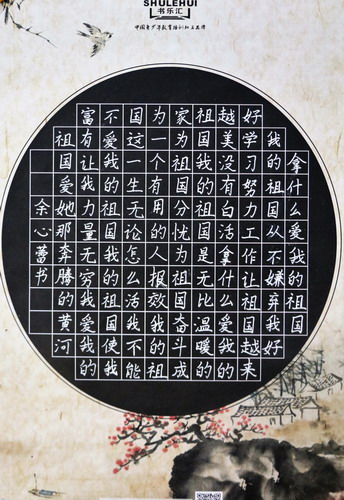 SHULEHUI
书乐汇
中国青少年教育培训知名品牌
拿什么爱我的祖国
我的祖国从不嫌弃我好
好学习努力工作让祖国越来
越美没有白活拿什么爱我的
祖国我的祖国是无比温暖的
家为祖国分忧为祖国奋斗成
为一个有用的人报效我的祖
国这一生无论怎么活我不能
不爱我的祖国我的祖国使我
富有让我力量无穷我爱我的
祖国爱她那奔腾的黄河
余心蕾书